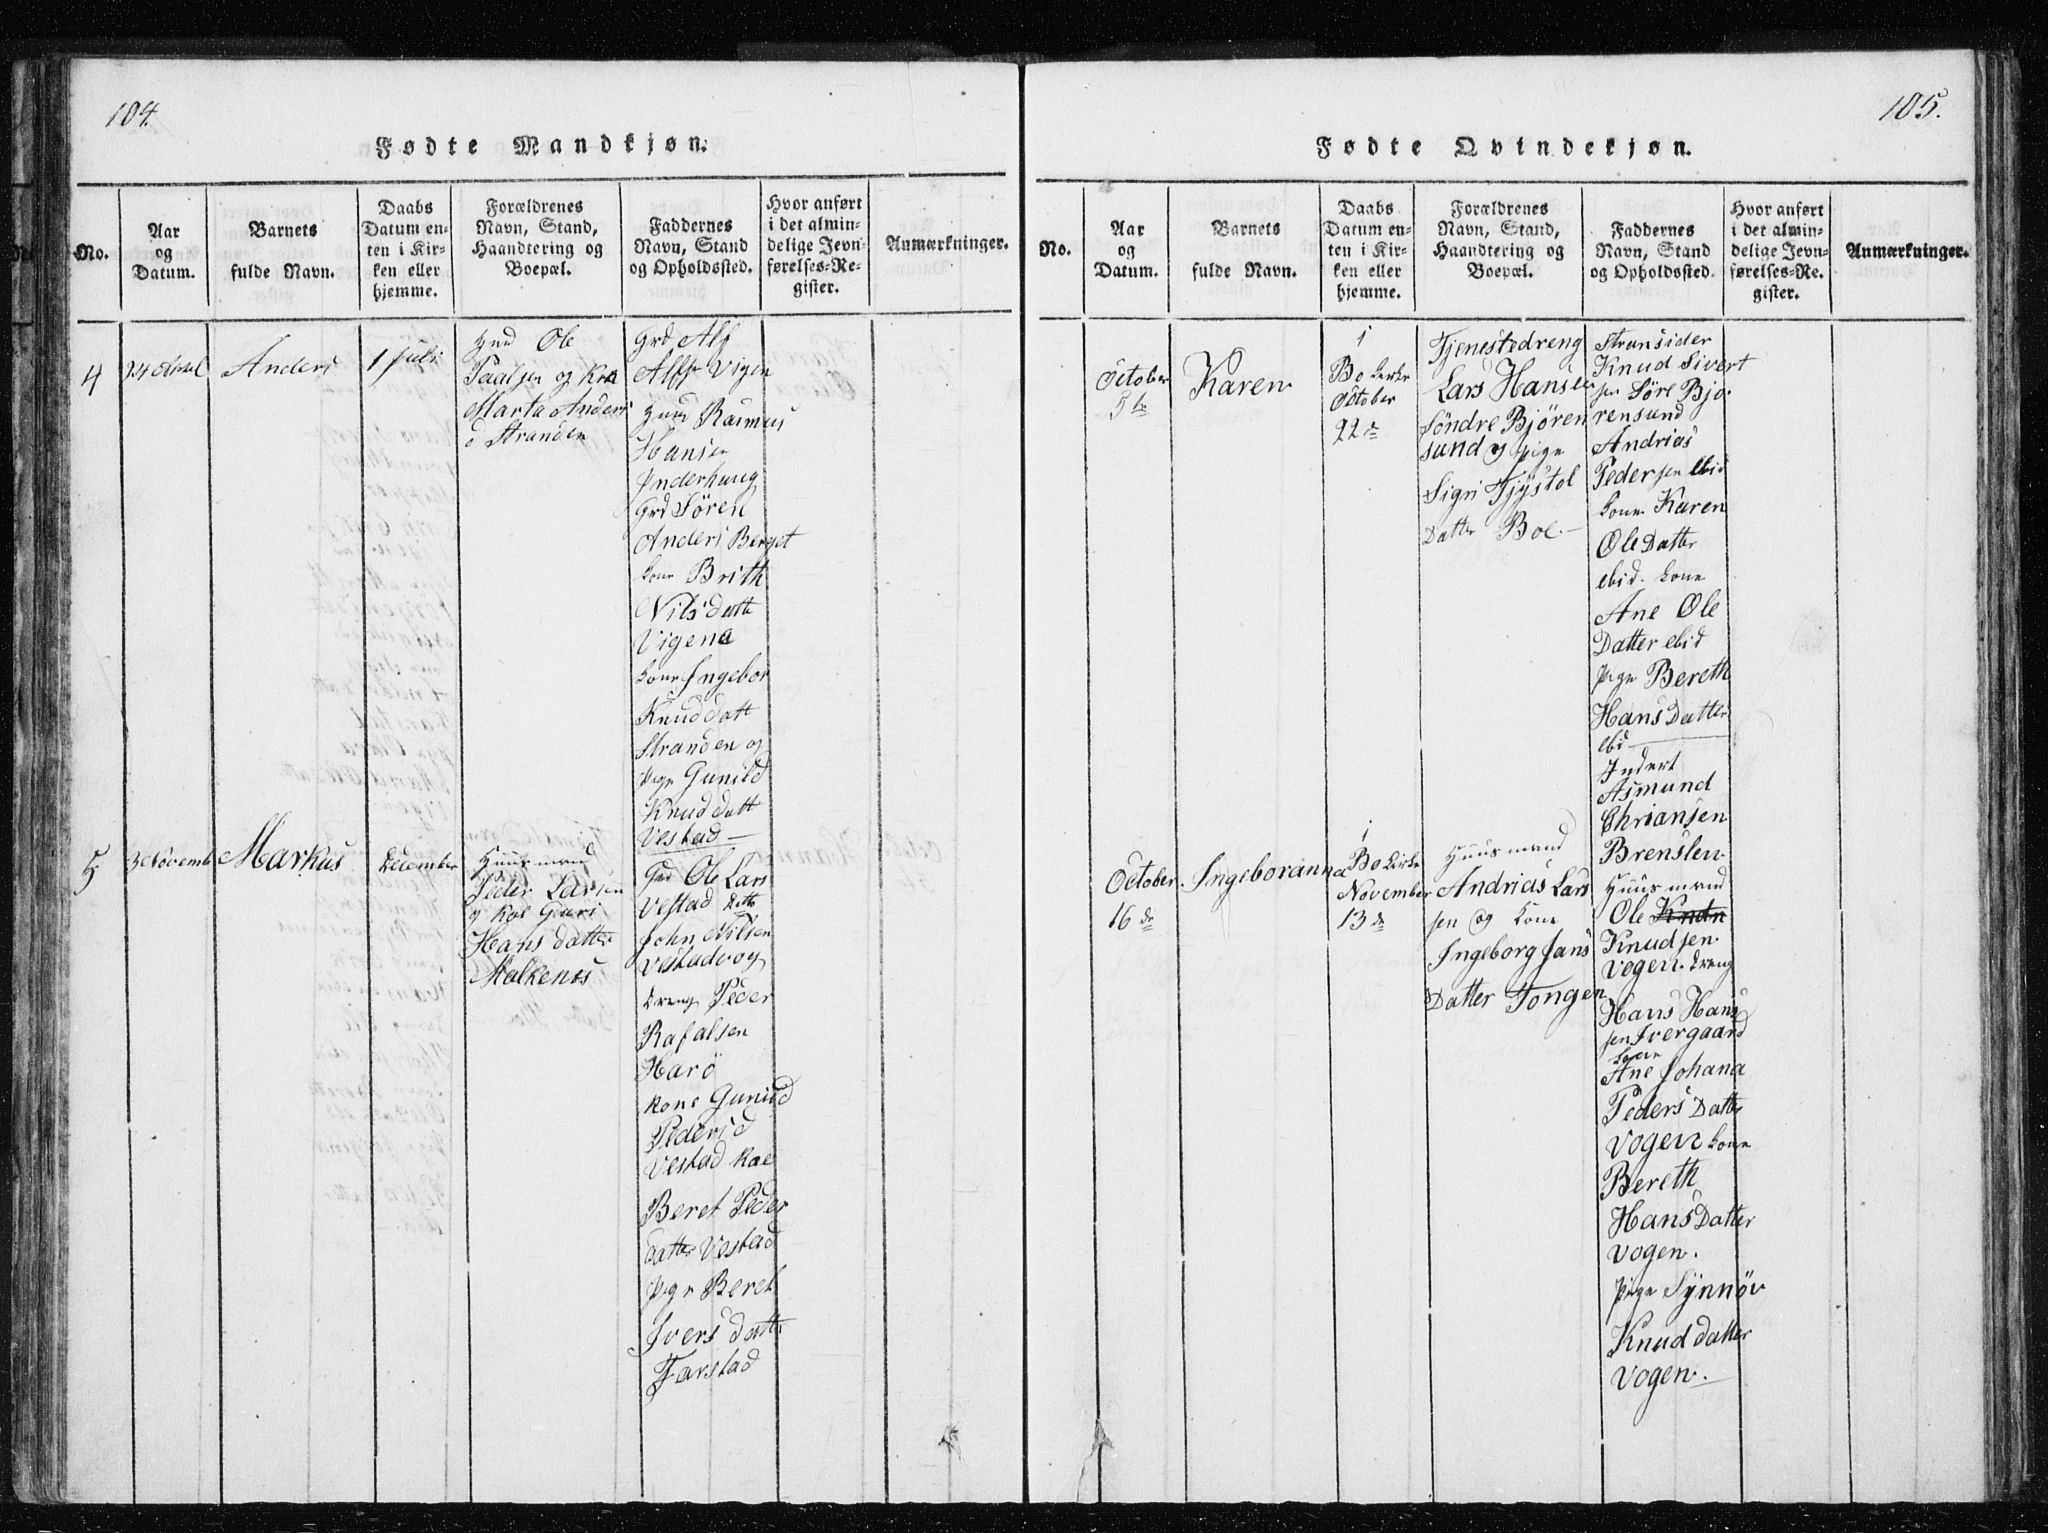 104.
Fødte Mandkjøn.
No.
Aar
og
Datum.
Barnets
fulde Navn.
Daabs
Datum en-
ten i Kir-
ken eller
hjemme.
Forældrenes
Navn, Stand,
Haandtering og
Boepæl.
Faddernes
Navn, Stand
og Opholdssted.
Hvor anført
i det almin-
delige Jevn-
førelses-Re-
gister.
Anmærkninger.
4
Anders
1 Juli
Ole
Paalsen og
Marta Anders
d Stranden
Grd Alf
Vigen
Rasmus
Hansen
Inderhaug
Grd Sören
Anders Berget
kone Brith
Nils datt
Vigena
kone Ingebor
Knud datt
Stranden og
Pige Gunild
Knud datt
Vestad
5
3 Novemb
Markus
December
Huusmand
Peder Larsen
og Guri
Hans datter
Malkenes
Ole Lars
Vestad
John Nilsen
Vestad og
dreng Peder
Rafalsen
Harö
kone Gunild
Peders d
Vestad
Beret Peder
datter Vestad
Pige Beret
Ivers datter
Tarstad
105.
Fødte Qvindekjøn.
No.
Aar
og
Datum.
Barnets
fulde Navn.
Daabs
Datum en-
ten i Kir-
ken eller
hjemme.
Forældrenes
Navn, Stand,
Haandtering og
Boepæl.
Faddernes
Navn, Stand
og Opholdssted.
Hvor anført
i det almin-
delige Jevn-
førelses-Re-
gister.
Anmærkninger.
October
5te
Karen
i
Bo kirke
October
22de
Tjenestedreng
Lars Hansen
Söndre Björen
sund og pige
Sigri Tjöstol
Datter Boe.
Stransider
Knud Sivert
sen Söre Bjo
rensund
Andrias
Pedersen ebid
kone Karen
Ole Datter
ebid. kone
Ane Ole
Datter ebid
Pige Bereth
Hans Datter
ebi
Asmund
Chriansen
Brenslen
October
16de
Ingeboranna
i
Bo kirke
November
13de
Huusmand
Andrias Lars
sen og kone
Ingeborg Jans
Datter Tongen
Huusmand
Ole
Knudsen
Vogen. dreng
Hans Hans
sen Ivergaard
kone
Ane Johana
Peders Datter
Vogen kone
Bereth
Hans Datter
Vogen.
Pige Synnöv
Knud datter
Vogen.